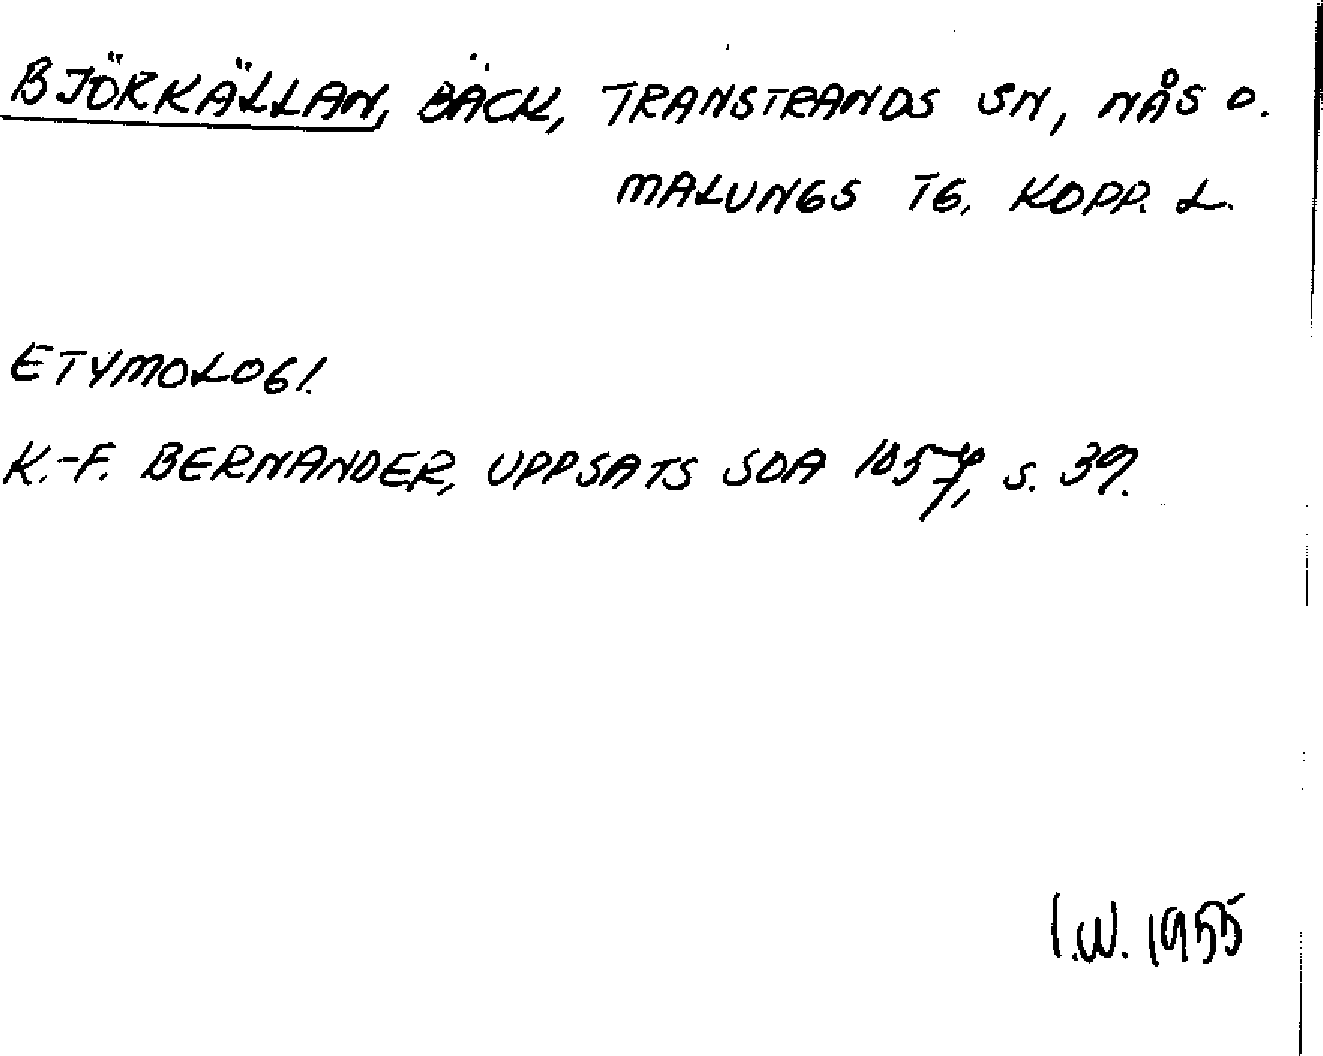 BJÖRKÄLLAN, BÄCK, TRANSTRANDS SN, NÅS O.
MALUNGS TG, KOPP. L.
ETYMOLOGI.
K.-F. BERNANDER, UPPSATS SOA s. 39.
I.W. 1955